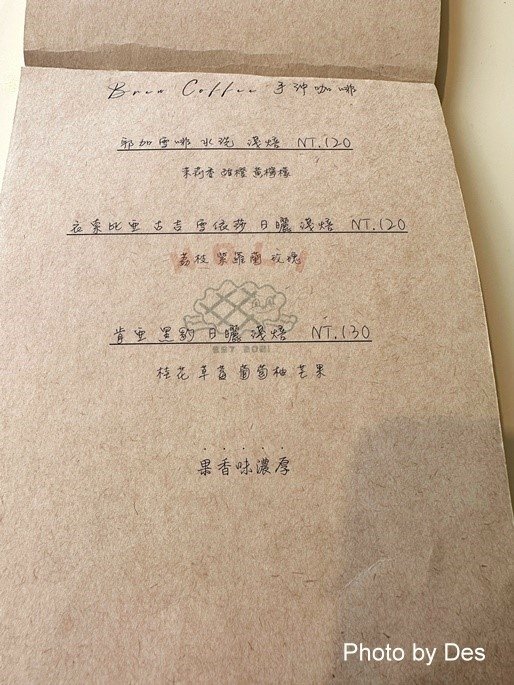 Brew Coffee 手沖咖啡
耶加雪啡 水洗 淺焙 NT.120
茉莉香 甜橙 黃檸檬
衣索比亞 古吉 雪依莎 日曬 淺焙 NT.120
荔枝 紫羅蘭 玫瑰
肯亞 黑豹 日曬 淺焙 NT.130
EST 2021
桂花 草莓 葡萄柚 芒果
果香味濃厚
Photo by Des